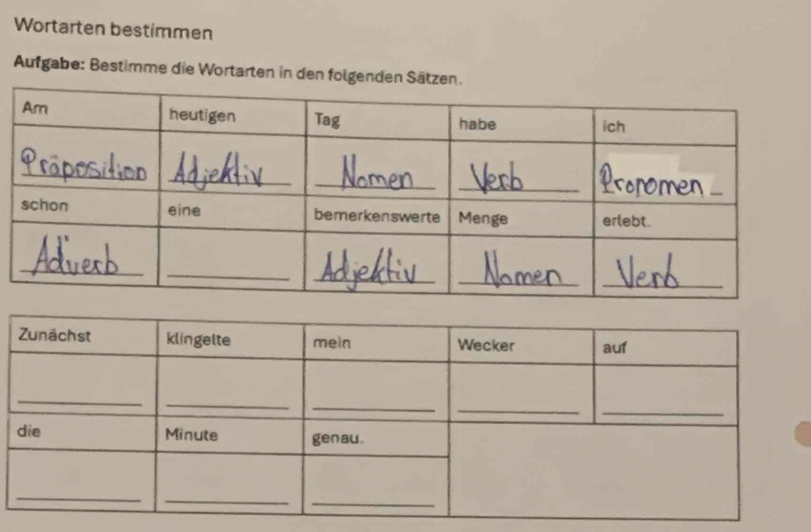 Wortarten bestimmen
Aufgabe: Bestimme die Wortarten in den folgenden Sätzen.
Am heutigen Tag habe ich
Präposition Adjektiv Nomen Verb Pronomen
schon eine bemerkenswerte Menge erlebt.
Adverb Adjektiv Nomen Verb
Zunächst klingelte mein Wecker auf
die Minute genau.